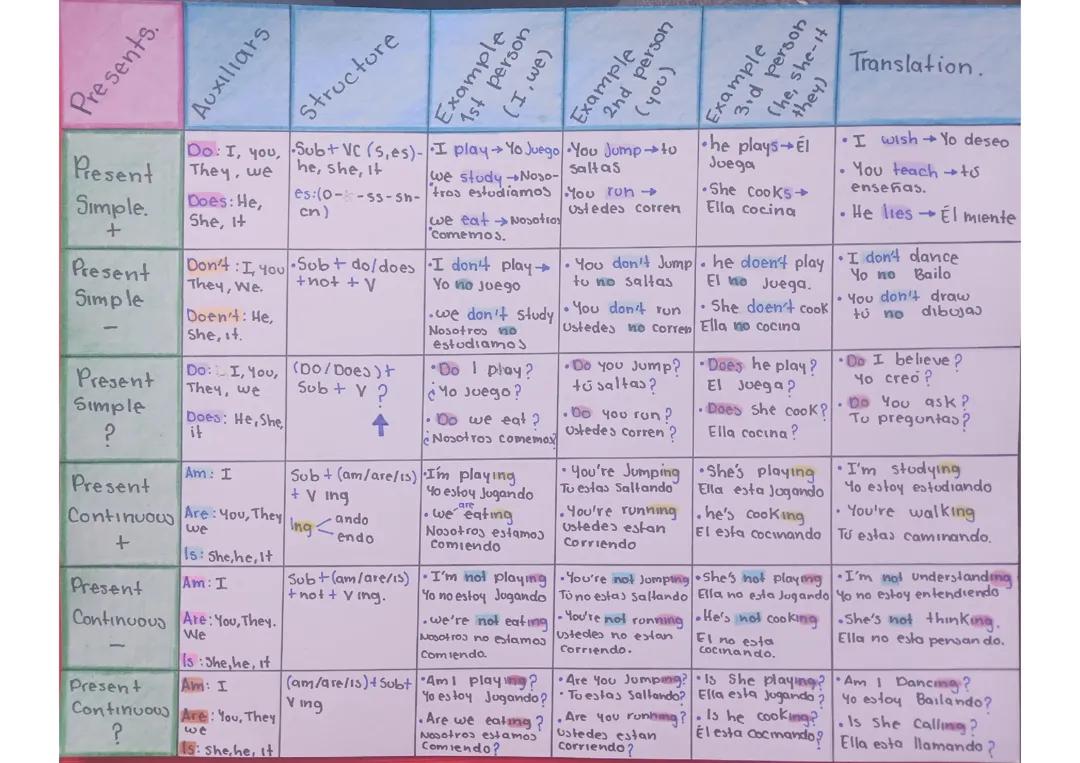 Presents.
Auxiliars
Structure
Example
1st person
(I, we)
Example
2nd person
(you)
Example
3rd person
(he, she-it
they)
Translation.
Present
Simple.
+
Do: I, you,
They, we
Does: He,
She, it
•Sub+ VC (s,es)-
he, she, it
es:(o- -ss-sh-
ch)
•I play→Yo Juego
we study→Noso-
tros estudiamos
we eat→Nosotros
comemos.
•You Jump→tu
saltas
•You run →
ustedes corren
•he plays→Él
Juega
•She cooks→
Ella cocina
• I wish→Yo deseo
• You teach→tú
enseñas.
• He lies → Él miente
Present
Simple
-
Don't: I, you
They, We.
Doen't: He,
She, it.
•Sub+ do/does
+not + V
•I don't play→
Yo no Juego
•we don't study
Nosotros no
estudiamos
• You don't Jump
tu no saltas
• You don't run
Ustedes no corren
• he doen't play
El no Juega.
• She doen't cook
Ella no cocina
•I don't dance
Yo no Bailo
• You don't draw
tú no dibujas
Present
Simple
?
Do: I, You,
They, we
Does: He, She,
it
(DO/Does)+
Sub + V ?
•Do I play?
¿Yo Juego?
• Do we eat?
¿Nosotros comemos?
•Do you Jump?
tú saltas?
•Do you run?
Ustedes corren?
•Does he play?
El Juega?
•Does She cook?
Ella cocina?
•Do I believe?
Yo creo?
• Do You ask?
Tu preguntas?
Present
Continuous
+
Am: I
Are: You, They
we
Is: She,he, It
Sub + (am/are/is)
+ V ing
Ing < ando
endo
•I'm playing
Yo estoy Jugando
are
•we eating
Nosotros estamos
comiendo
•You're Jumping
Tu estas Saltando
•You're running
ustedes estan
corriendo
•She's playing
Ella esta Jugando
•he's cooking
El esta cocinando
•I'm studying
Yo estoy estudiando
• You're walking
Tú estas caminando.
Present
Continuous
-
Am: I
Are: You, They.
We
Is: She,he, it
Sub+(am/are/is)
+not + V ing.
•I'm not playing
Yo no estoy Jugando
•we're not eating
Nosotros no estamos
comiendo.
•You're not Jumping
Tú no estas Saltando
•You're not running
Ustedes no estan
corriendo.
•She's not playing
Ella no esta Jugando
•He's not cooking
El no esta
cocinando.
•I'm not understanding
Yo no estoy entendiendo
•She's not thinking.
Ella no esta pensando.
Present
Continuous
?
Am: I
Are: You, They
we
Is: She,he, it
(am/are/is)+Sub+
V ing
•Am I playing?
Yo estoy Jugando?
•Are we eating?
Nosotros estamos
comiendo?
•Are You Jumping?
•Tu estas Saltando?
•Are you running?
Ustedes estan
corriendo?
•Is She playing?
Ella esta Jugando?
•Is he cooking?
Él esta Cocinando?
•Am I Dancing?
Yo estoy Bailando?
•Is She Calling?
Ella esta llamando?